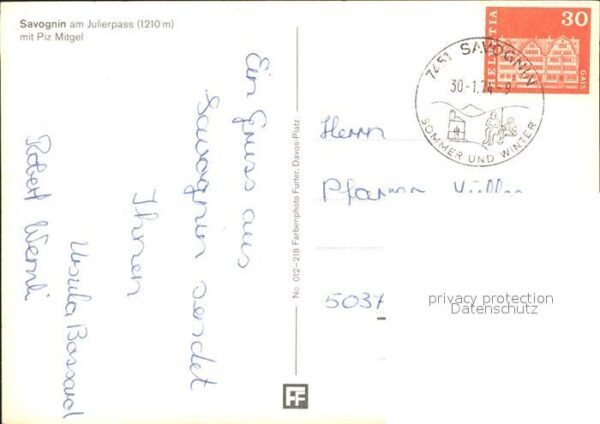 Savognin am Julierpass (1210 m)
mit Piz Mitgel
Ein Gruss aus
Savognin sendet
Ihnen
Ursula Bossard
Robert Wernli
No. 012-218 Farbenphoto Furter, Davos-Platz
FF
HELVETIA
30
GAIS
7451 SAVOGNIN
30-1.74-9
SOMMER UND WINTER
Herrn
Pfarrer Müller
5037
privacy protection
Datenschutz